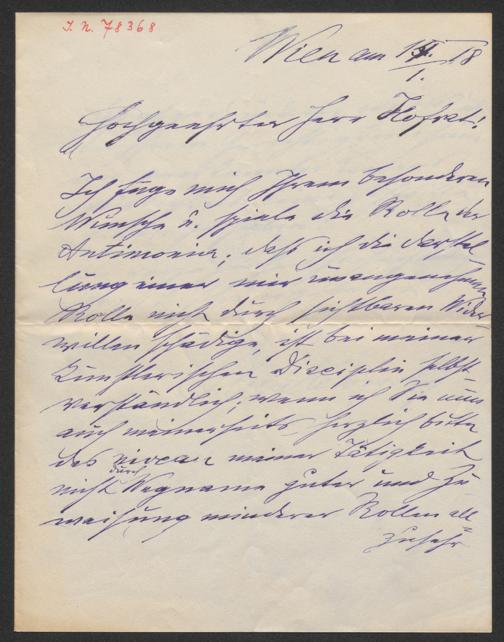 I. N. 78368
Wien am 18
I.
Hochgeehrter Herr Hofrat!
Ich füge mich Ihrem besonderen
Wunsche u. spiele die Rolle der
Antimonia; daß ich die Darstel-
lung einer mir unangenehmen
Rolle nicht durch sichtbaren Wider
willen schädige, ist bei meiner
künstlerischen Disciplin selbst
verständlich; wenn ich Sie nun
auch meinerseits herzlich bitte
das niveau meiner Tätigkeit
nicht durch Wegname guter und Zu
weisung minderer Rollen all=
zusehr